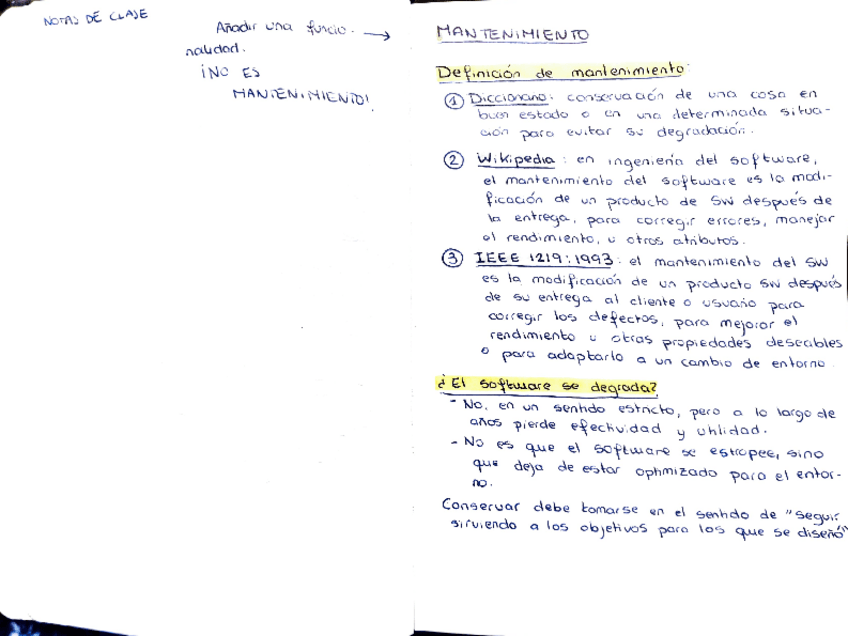 NOTAS DE CLASE
Añadir una funcio- →
nalidad.
¡NO ES
MANTENIMIENTO!
MANTENIMIENTO
Definición de mantenimiento:
① Diccionario: conservación de una cosa en
buen estado o en una determinada situa-
ción para evitar su degradación.
② Wikipedia: en ingeniería del software,
el mantenimiento del software es la modi-
ficación de un producto de SW después de
la entrega, para corregir errores, manejar
el rendimiento, u otros atributos.
③ IEEE 1219:1993: el mantenimiento del SW
es la modificación de un producto SW después
de su entrega al cliente o usuario para
corregir los defectos, para mejorar el
rendimiento u otras propiedades deseables
o para adaptarlo a un cambio de entorno.
¿El software se degrada?
- No, en un sentido estricto, pero a lo largo de
años pierde efectividad y utilidad.
- No es que el software se estropee, sino
que deja de estar optimizado para el entor-
no.
Conservar debe tomarse en el sentido de "seguir
sirviendo a los objetivos para los que se diseñó"